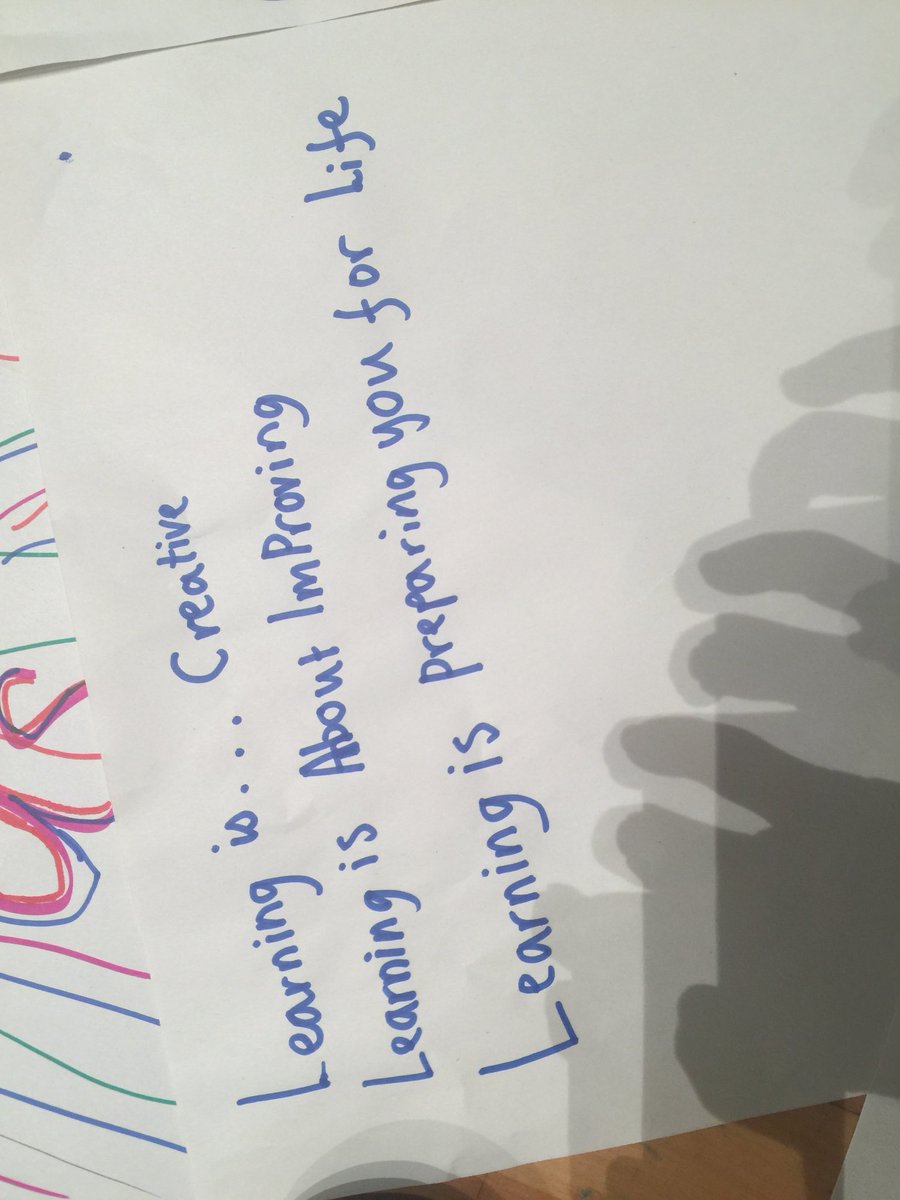 Learning is... Creative
Learning is About ImProving
Learning is preparing you for Life